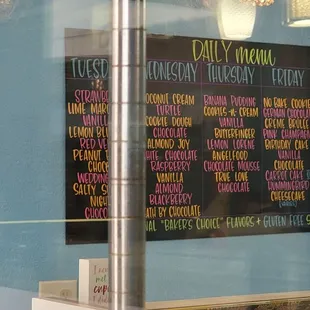 DAILY menu
TUESD
STRAWB
LIME MAR
VANILLA
LEMON BL
RED VE
PEANUT
CHOC
WEDDING
SALTY S
NIGHT
CHOC
WEDNESDAY
COCONUT CREAM
TURTLE
COOKIE DOUGH
CHOCOLATE
ALMOND JOY
WHITE CHOCOLATE
RASPBERRY
VANILLA
ALMOND
BLACKBERRY
DEATH BY CHOCOLATE
THURSDAY
BANANA PUDDING
COOKIES-N-CREAM
VANILLA
BUTTERFINGER
LEMON LORENE
ANGELFOOD
CHOCOLATE MOUSSE
TRUE LOVE
CHOCOLATE
FRIDAY
NO BAKE COOKIE
GERMAN CHOCOLATE
CREME BRULEE
PINK CHAMPAGNE
BIRTHDAY CAKE
VANILLA
CHOCOLATE
CARROT CAKE
CHEESECAKE
NAL "BAKER'S CHOICE" FLAVORS + GLUTEN FREE